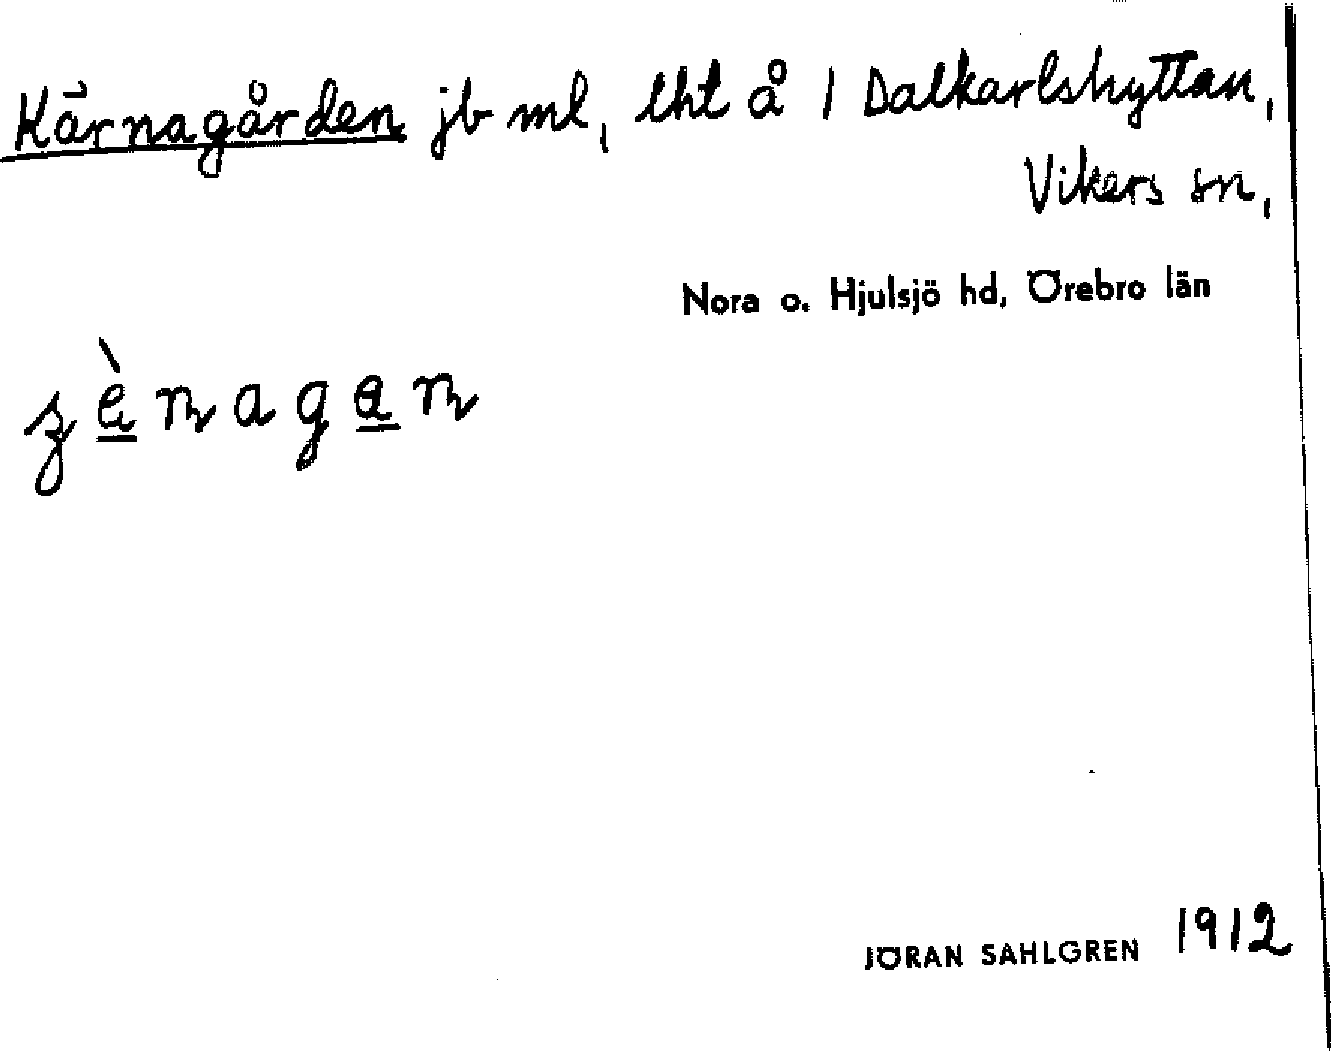 Kärnagården jb ml, lht å 1 Dalkarlshyttan,
Vikers sn,
Nora o. Hjulsjö hd, Örebro län
JÖRAN SAHLGREN 1912